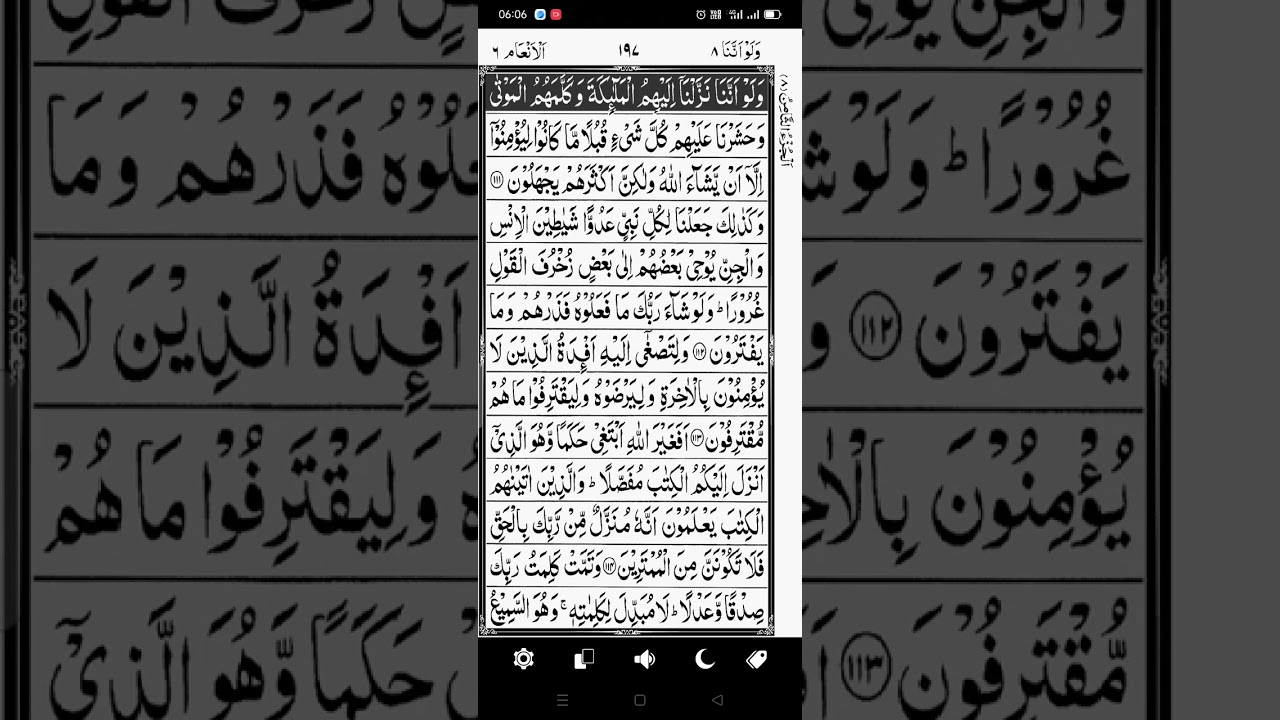 06:06
وَلَوْ اَنَّنَا ٨
١٩٧
اَلْاَنْعَام ٦
وَلَوْ اَنَّنَا نَزَّلْنَاۤ اِلَيْهِمُ الْمَلٰٓئِكَةَ وَكَلَّمَهُمُ الْمَوْتٰى
وَحَشَرْنَا عَلَيْهِمْ كُلَّ شَىْءٍ قُبُلًا مَّا كَانُوْا لِيُؤْمِنُوْۤا
اِلَّاۤ اَنْ يَّشَآءَ اللّٰهُ وَلٰكِنَّ اَكْثَرَهُمْ يَجْهَلُوْنَ ١١١
وَكَذٰلِكَ جَعَلْنَا لِكُلِّ نَبِىٍّ عَدُوًّا شَيٰطِيْنَ الْاِنْسِ
وَالْجِنِّ يُوْحِىْ بَعْضُهُمْ اِلٰى بَعْضٍ زُخْرُفَ الْقَوْلِ
غُرُوْرًا ؕ وَلَوْ شَآءَ رَبُّكَ مَا فَعَلُوْهُ فَذَرْهُمْ وَمَا
يَفْتَرُوْنَ ١١٢ وَلِتَصْغٰٓى اِلَيْهِ اَفْـِٕدَةُ الَّذِيْنَ لَا
يُؤْمِنُوْنَ بِالْاٰخِرَةِ وَلِيَرْضَوْهُ وَلِيَقْتَرِفُوْا مَا هُمْ
مُّقْتَرِفُوْنَ ١١٣ اَفَغَيْرَ اللّٰهِ اَبْتَغِىْ حَكَمًا وَّهُوَ الَّذِىْۤ
اَنْزَلَ اِلَيْكُمُ الْكِتٰبَ مُفَصَّلًا ؕ وَالَّذِيْنَ اٰتَيْنٰهُمُ
الْكِتٰبَ يَعْلَمُوْنَ اَنَّهٗ مُنَزَّلٌ مِّنْ رَّبِّكَ بِالْحَقِّ
فَلَا تَكُوْنَنَّ مِنَ الْمُمْتَرِيْنَ ١١٤ وَتَمَّتْ كَلِمَتُ رَبِّكَ
صِدْقًا وَّعَدْلًا ؕ لَا مُبَدِّلَ لِكَلِمٰتِهٖ ۚ وَهُوَ السَّمِيْعُ
اَلْجُزْءُ الثَّامِنُ (٨)